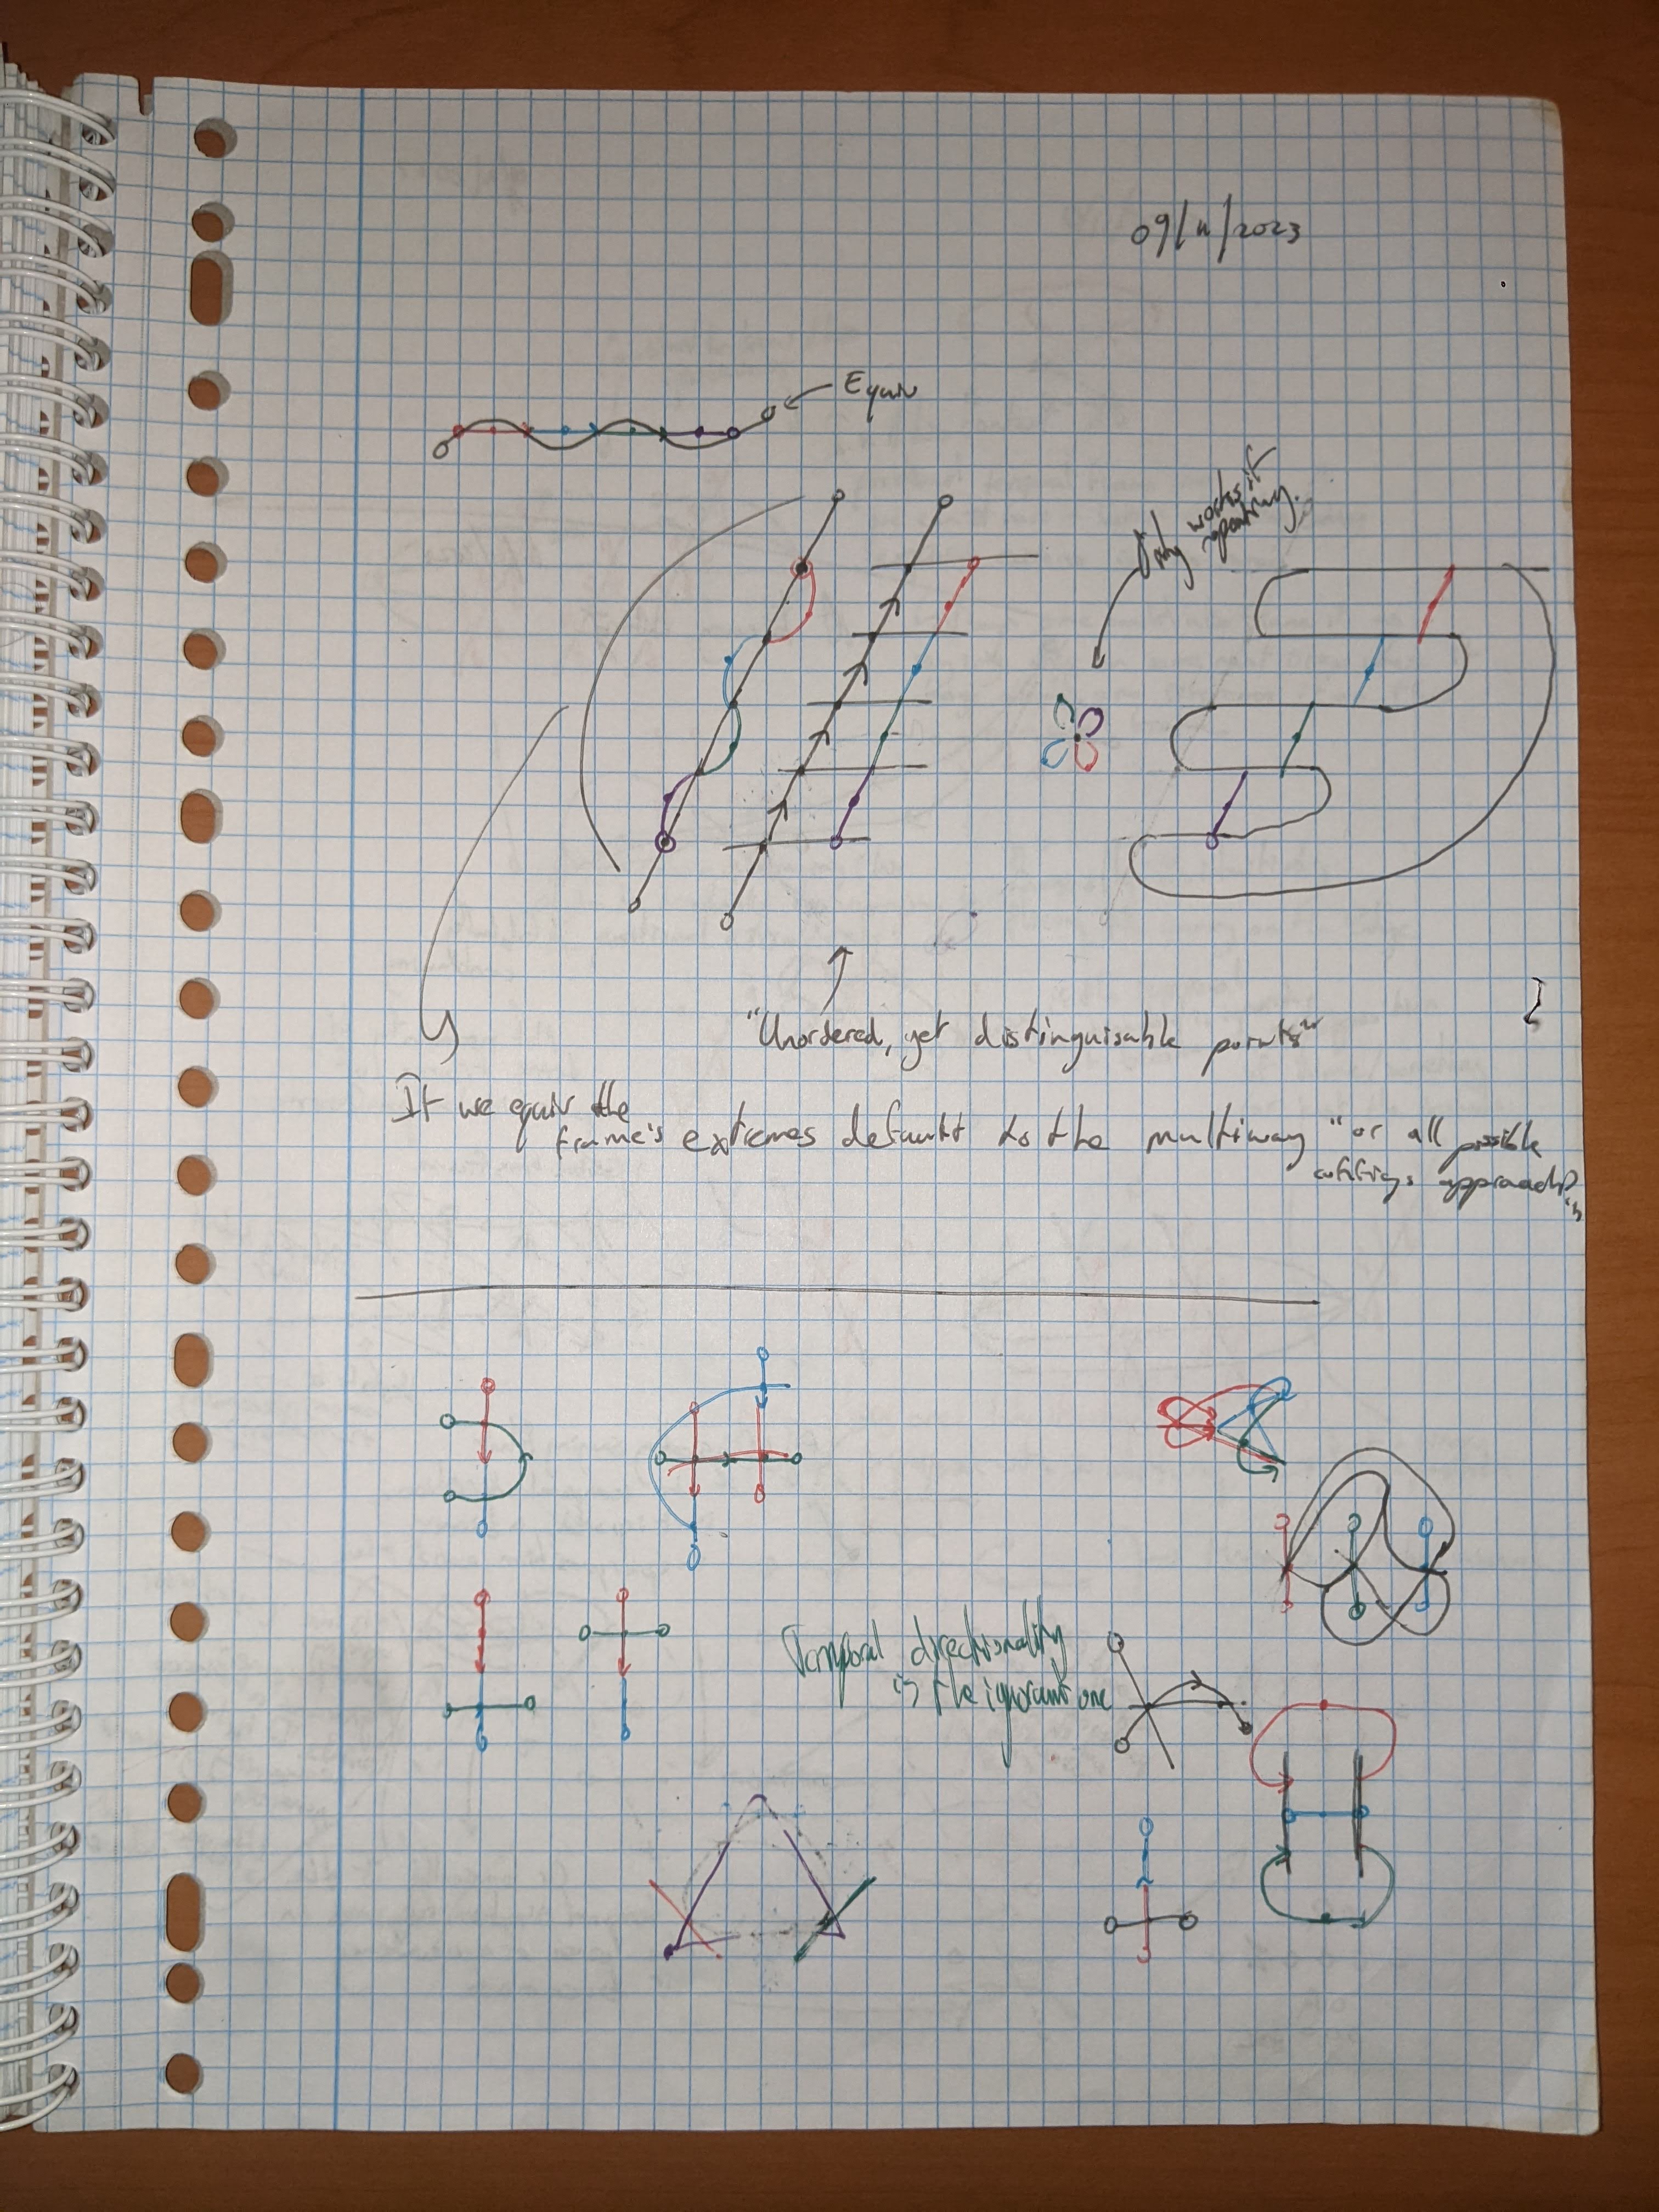 09/11/2023
Equiv
Only works if
repeating.
"Unordered, yet distinguisable points"
If we equiv the
frame's extremes default to the multiway "or all possible
configs approach"
Temporal directionality
is the ignorant one